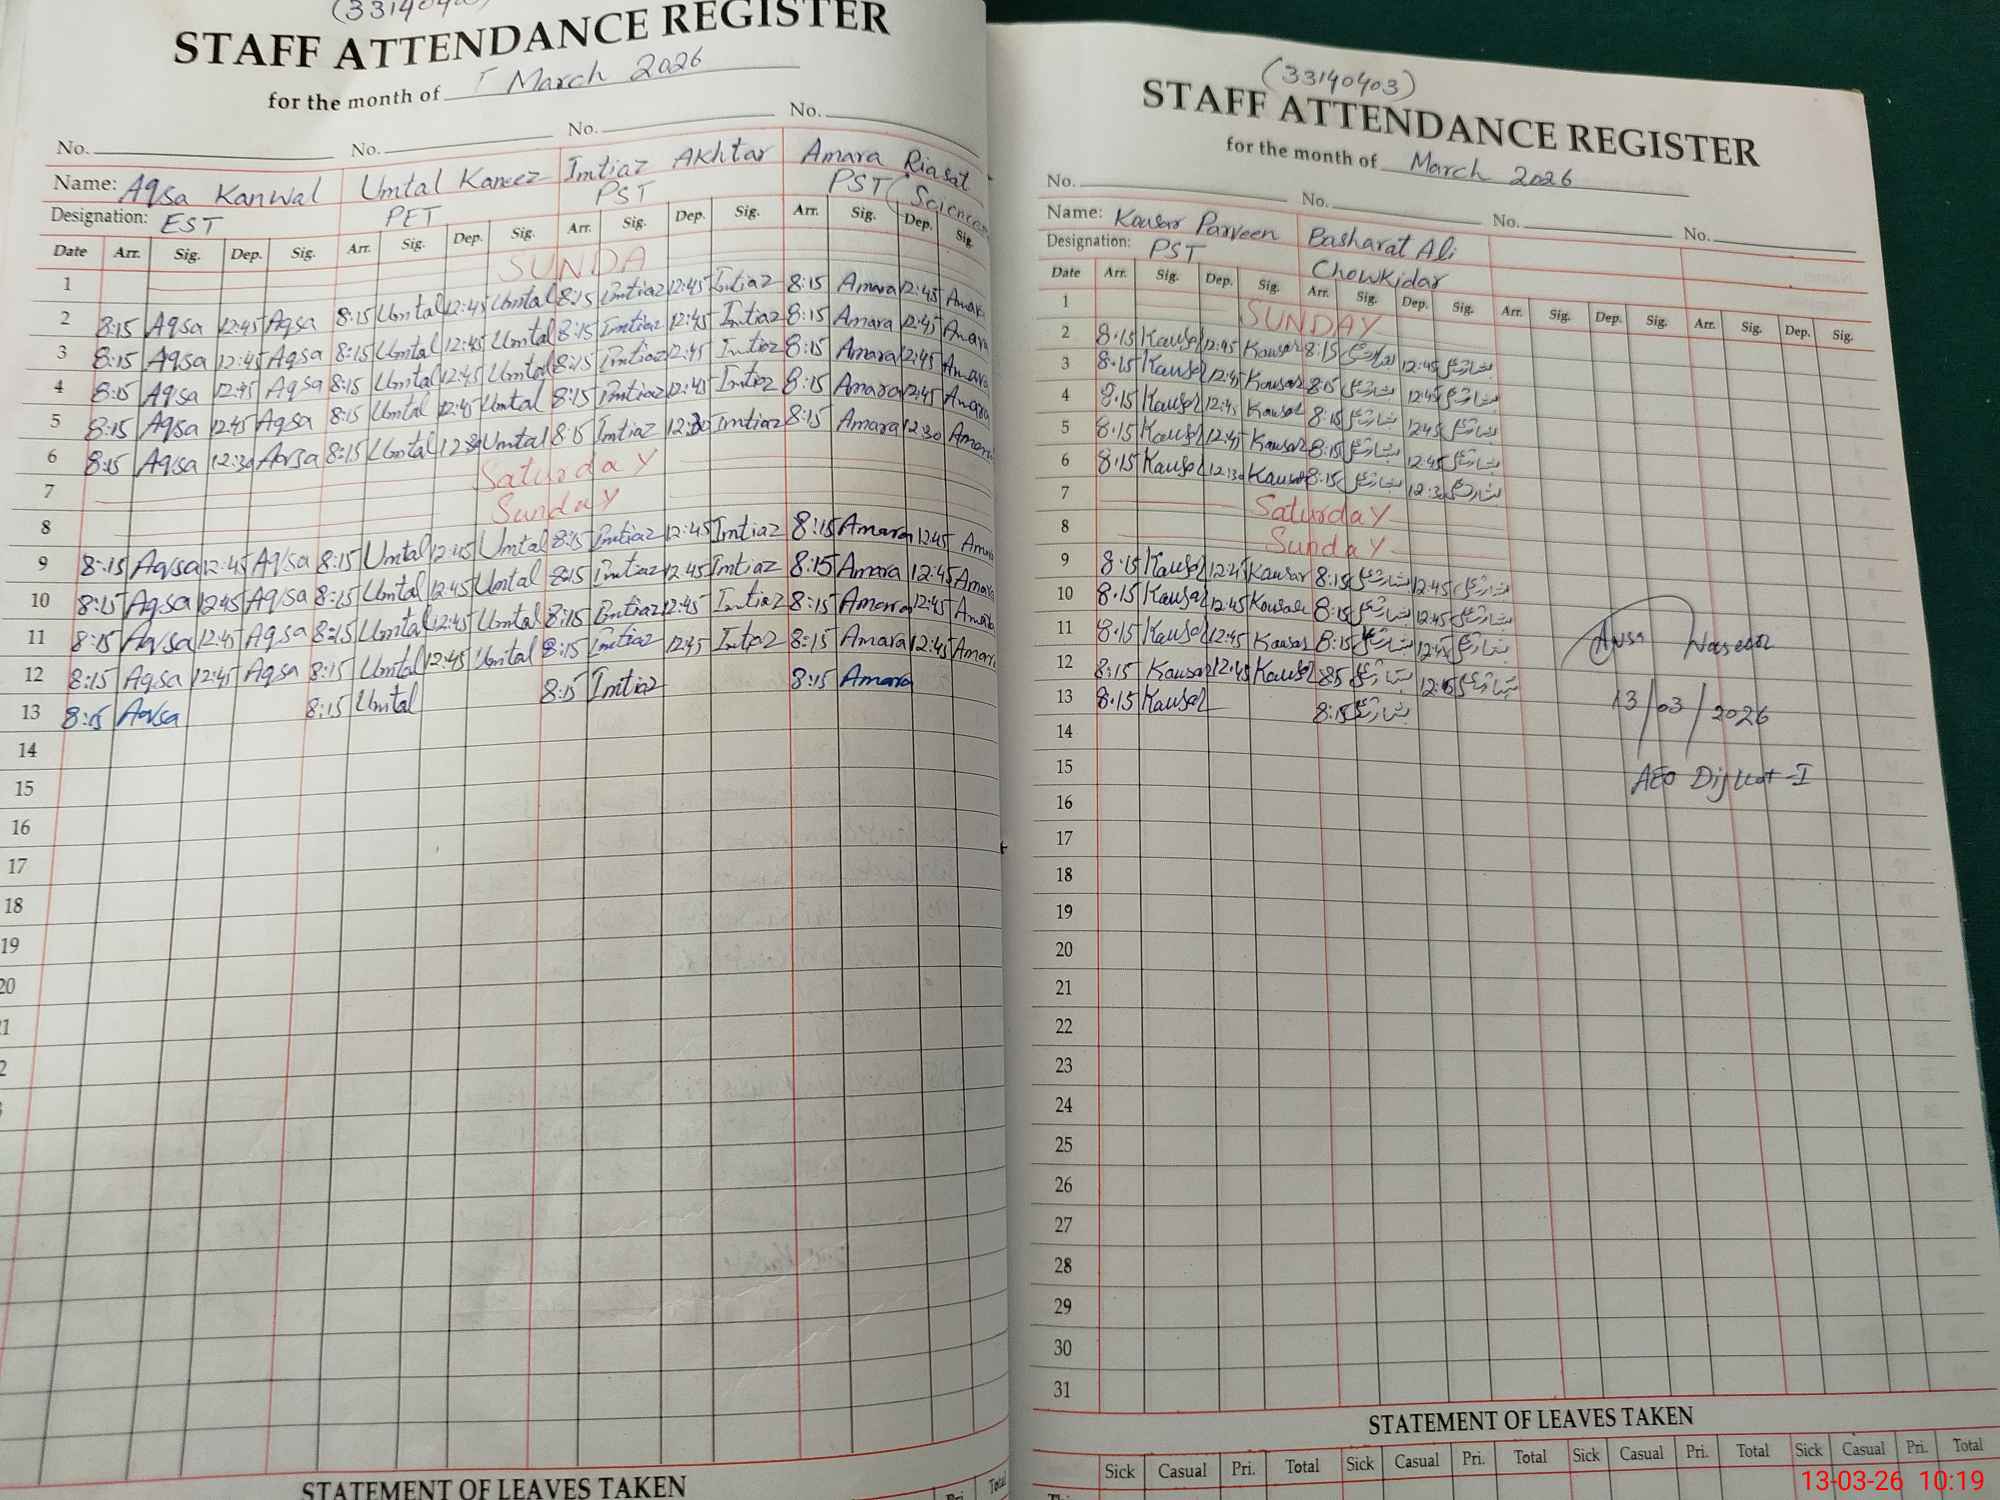 STAFF ATTENDANCE REGISTER
for the month of March 2026
No. No. No. No.
Name: Aqsa Kanwal Umtal Kaneez Imtiaz Akhtar Amara Riasat
Designation: EST PET PST PST (Science
Date Arr. Sig. Dep. Sig. Arr. Sig. Dep. Sig. Arr. Sig. Dep. Sig. Arr. Sig. Dep. Sig.
1 SUNDA
2 8:15 Aqsa 12:45 Aqsa 8:15 Umtal 12:45 Umtal 8:15 Imtiaz 12:45 Imtiaz 8:15 Amara 12:45 Amara
3 8:15 Aqsa 12:45 Aqsa 8:15 Umtal 12:45 Umtal 8:15 Imtiaz 12:45 Imtiaz 8:15 Amara 12:45 Amara
4 8:15 Aqsa 12:45 Aqsa 8:15 Umtal 12:45 Umtal 8:15 Imtiaz 12:45 Imtiaz 8:15 Amara 12:45 Amara
5 8:15 Aqsa 12:45 Aqsa 8:15 Umtal 12:45 Umtal 8:15 Imtiaz 12:45 Imtiaz 8:15 Amara 12:45 Amara
6 8:15 Aqsa 12:30 Aqsa 8:15 Umtal 12:30 Umtal 8:15 Imtiaz 12:30 Imtiaz 8:15 Amara 12:30 Amara
7 Saturday
8 Sunday
9 8:15 Aqsa 12:45 Aqsa 8:15 Umtal 12:45 Umtal 8:15 Imtiaz 12:45 Imtiaz 8:15 Amara 12:45 Amara
10 8:15 Aqsa 12:45 Aqsa 8:15 Umtal 12:45 Umtal 8:15 Imtiaz 12:45 Imtiaz 8:15 Amara 12:45 Amara
11 8:15 Aqsa 12:45 Aqsa 8:15 Umtal 12:45 Umtal 8:15 Imtiaz 12:45 Imtiaz 8:15 Amara 12:45 Amara
12 8:15 Aqsa 12:45 Aqsa 8:15 Umtal 12:45 Umtal 8:15 Imtiaz 12:45 Imtiaz 8:15 Amara 12:45 Amara
13 8:15 Aqsa 8:15 Umtal 8:15 Imtiaz 8:15 Amara
14
15
16
17
18
19
20
STATEMENT OF LEAVES TAKEN
Pri. Total
(33140403)
STAFF ATTENDANCE REGISTER
for the month of March 2026
No. No. No. No.
Name: Kausar Parveen Basharat Ali
Designation: PST Chowkidar
Date Arr. Sig. Dep. Sig. Arr. Sig. Dep. Sig. Arr. Sig. Dep. Sig. Arr. Sig. Dep. Sig.
1 SUNDAY
2 8:15 Kausar 12:45 Kausar 8:15 بشارت علی 12:45 بشارت علی
3 8:15 Kausar 12:45 Kausar 8:15 بشارت علی 12:45 بشارت علی
4 8:15 Kausar 12:45 Kausar 8:15 بشارت علی 12:45 بشارت علی
5 8:15 Kausar 12:45 Kausar 8:15 بشارت علی 12:45 بشارت علی
6 8:15 Kausar 12:30 Kausar 8:15 بشارت علی 12:30 بشارت علی
7 Saturday
8 Sunday
9 8:15 Kausar 12:45 Kausar 8:15 بشارت علی 12:45 بشارت علی
10 8:15 Kausar 12:45 Kausar 8:15 بشارت علی 12:45 بشارت علی
11 8:15 Kausar 12:45 Kausar 8:15 بشارت علی 12:45 بشارت علی
12 8:15 Kausar 12:45 Kausar 8:15 بشارت علی 12:45 بشارت علی
13 8:15 Kausar 8:15 بشارت علی
14
15
16
17
18
19
20
21
22
23
24
25
26
27
28
29
30
31
13/03/2026
AEO Dijkot-I
STATEMENT OF LEAVES TAKEN
Sick Casual Pri. Total Sick Casual Pri. Total Sick Casual Pri. Total Sick Casual Pri. Total
13-03-26 10:19